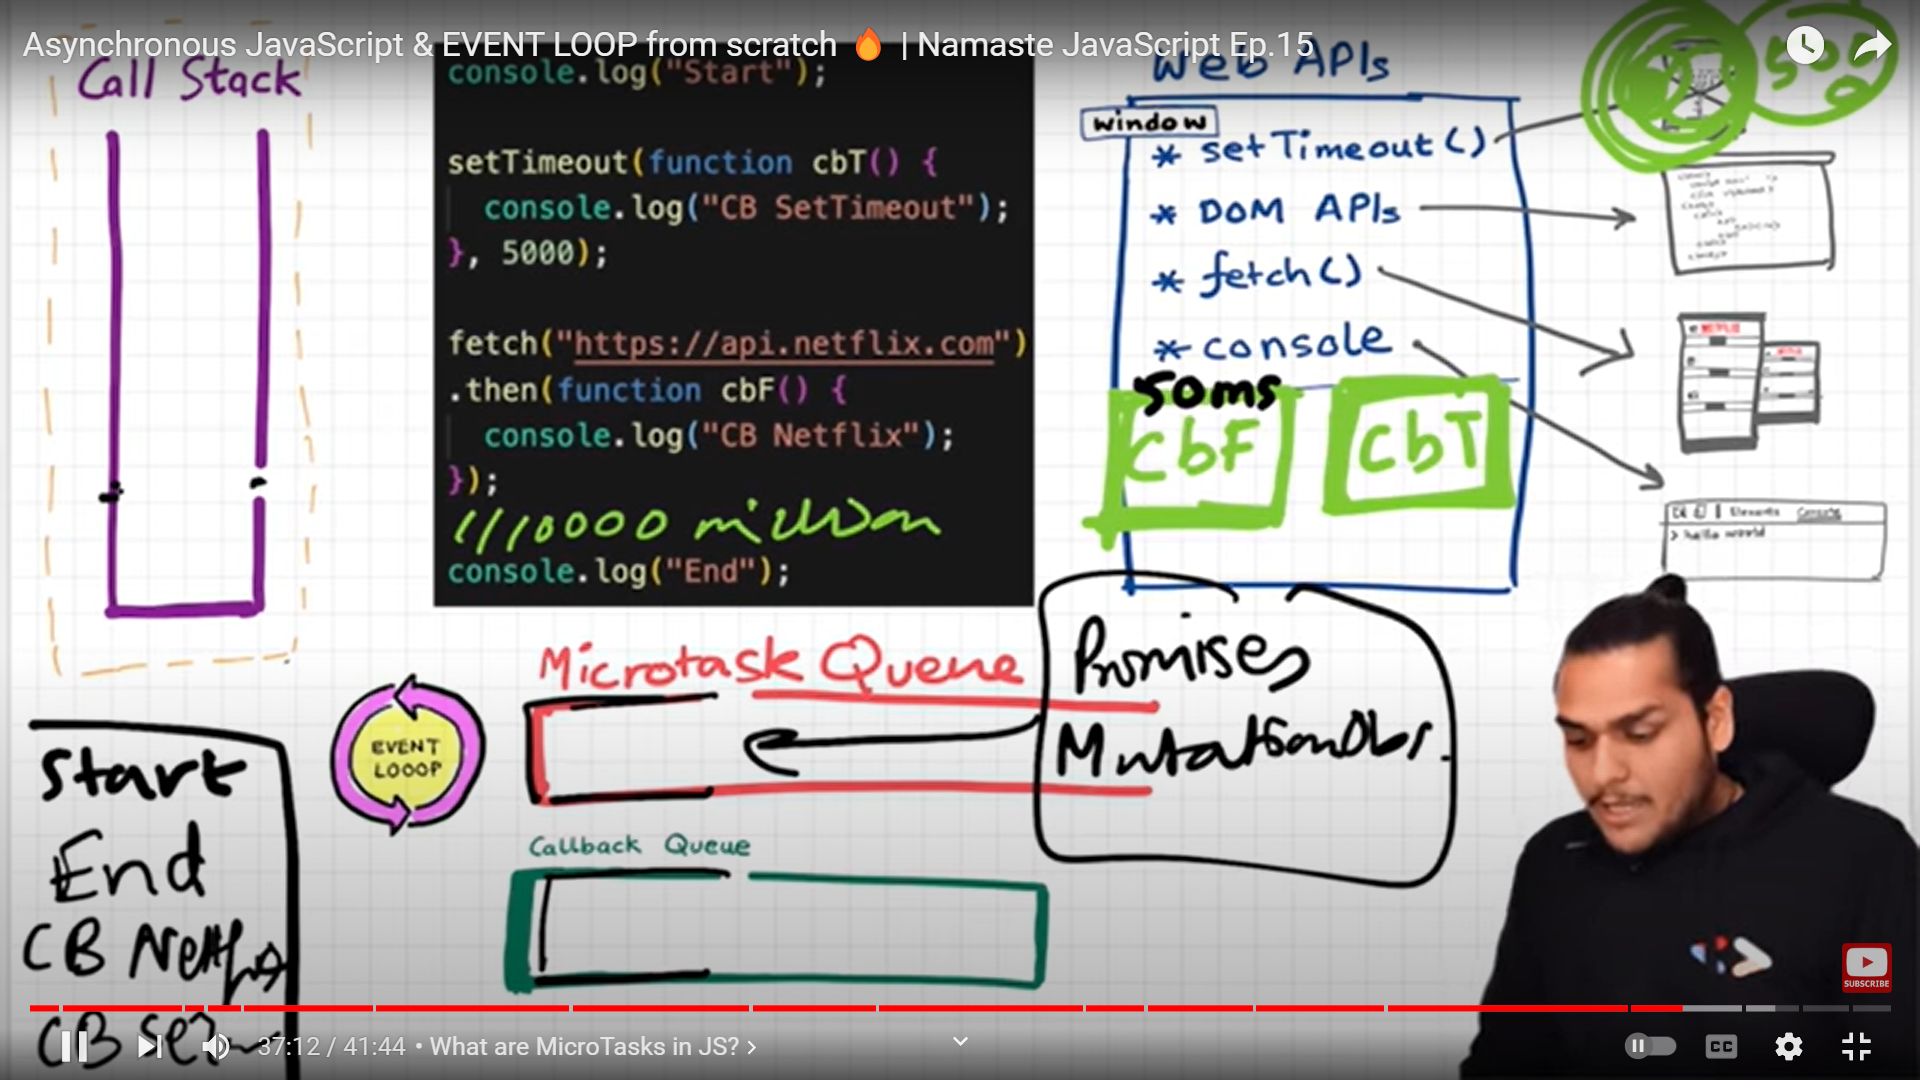 Asynchronous JavaScript & EVENT LOOP from scratch 🔥 | Namaste JavaScript Ep.15
Call Stack
console.log("Start");
setTimeout(function cbT() {
console.log("CB SetTimeout");
}, 5000);
fetch("https://api.netflix.com")
.then(function cbF() {
console.log("CB Netflix");
});
million
console.log("End");
Web APIs
window
* setTimeout()
* DOM APIs
* fetch()
* console
50ms
CbF
CbT
NETFLIX
Elements Console
> hello world
Microtask Queue
Promises
EVENT
LOOOP
Callback Queue
Start
End
CB Netflix
CB Se
SUBSCRIBE
37:12 / 41:44 • What are MicroTasks in JS? >
CC